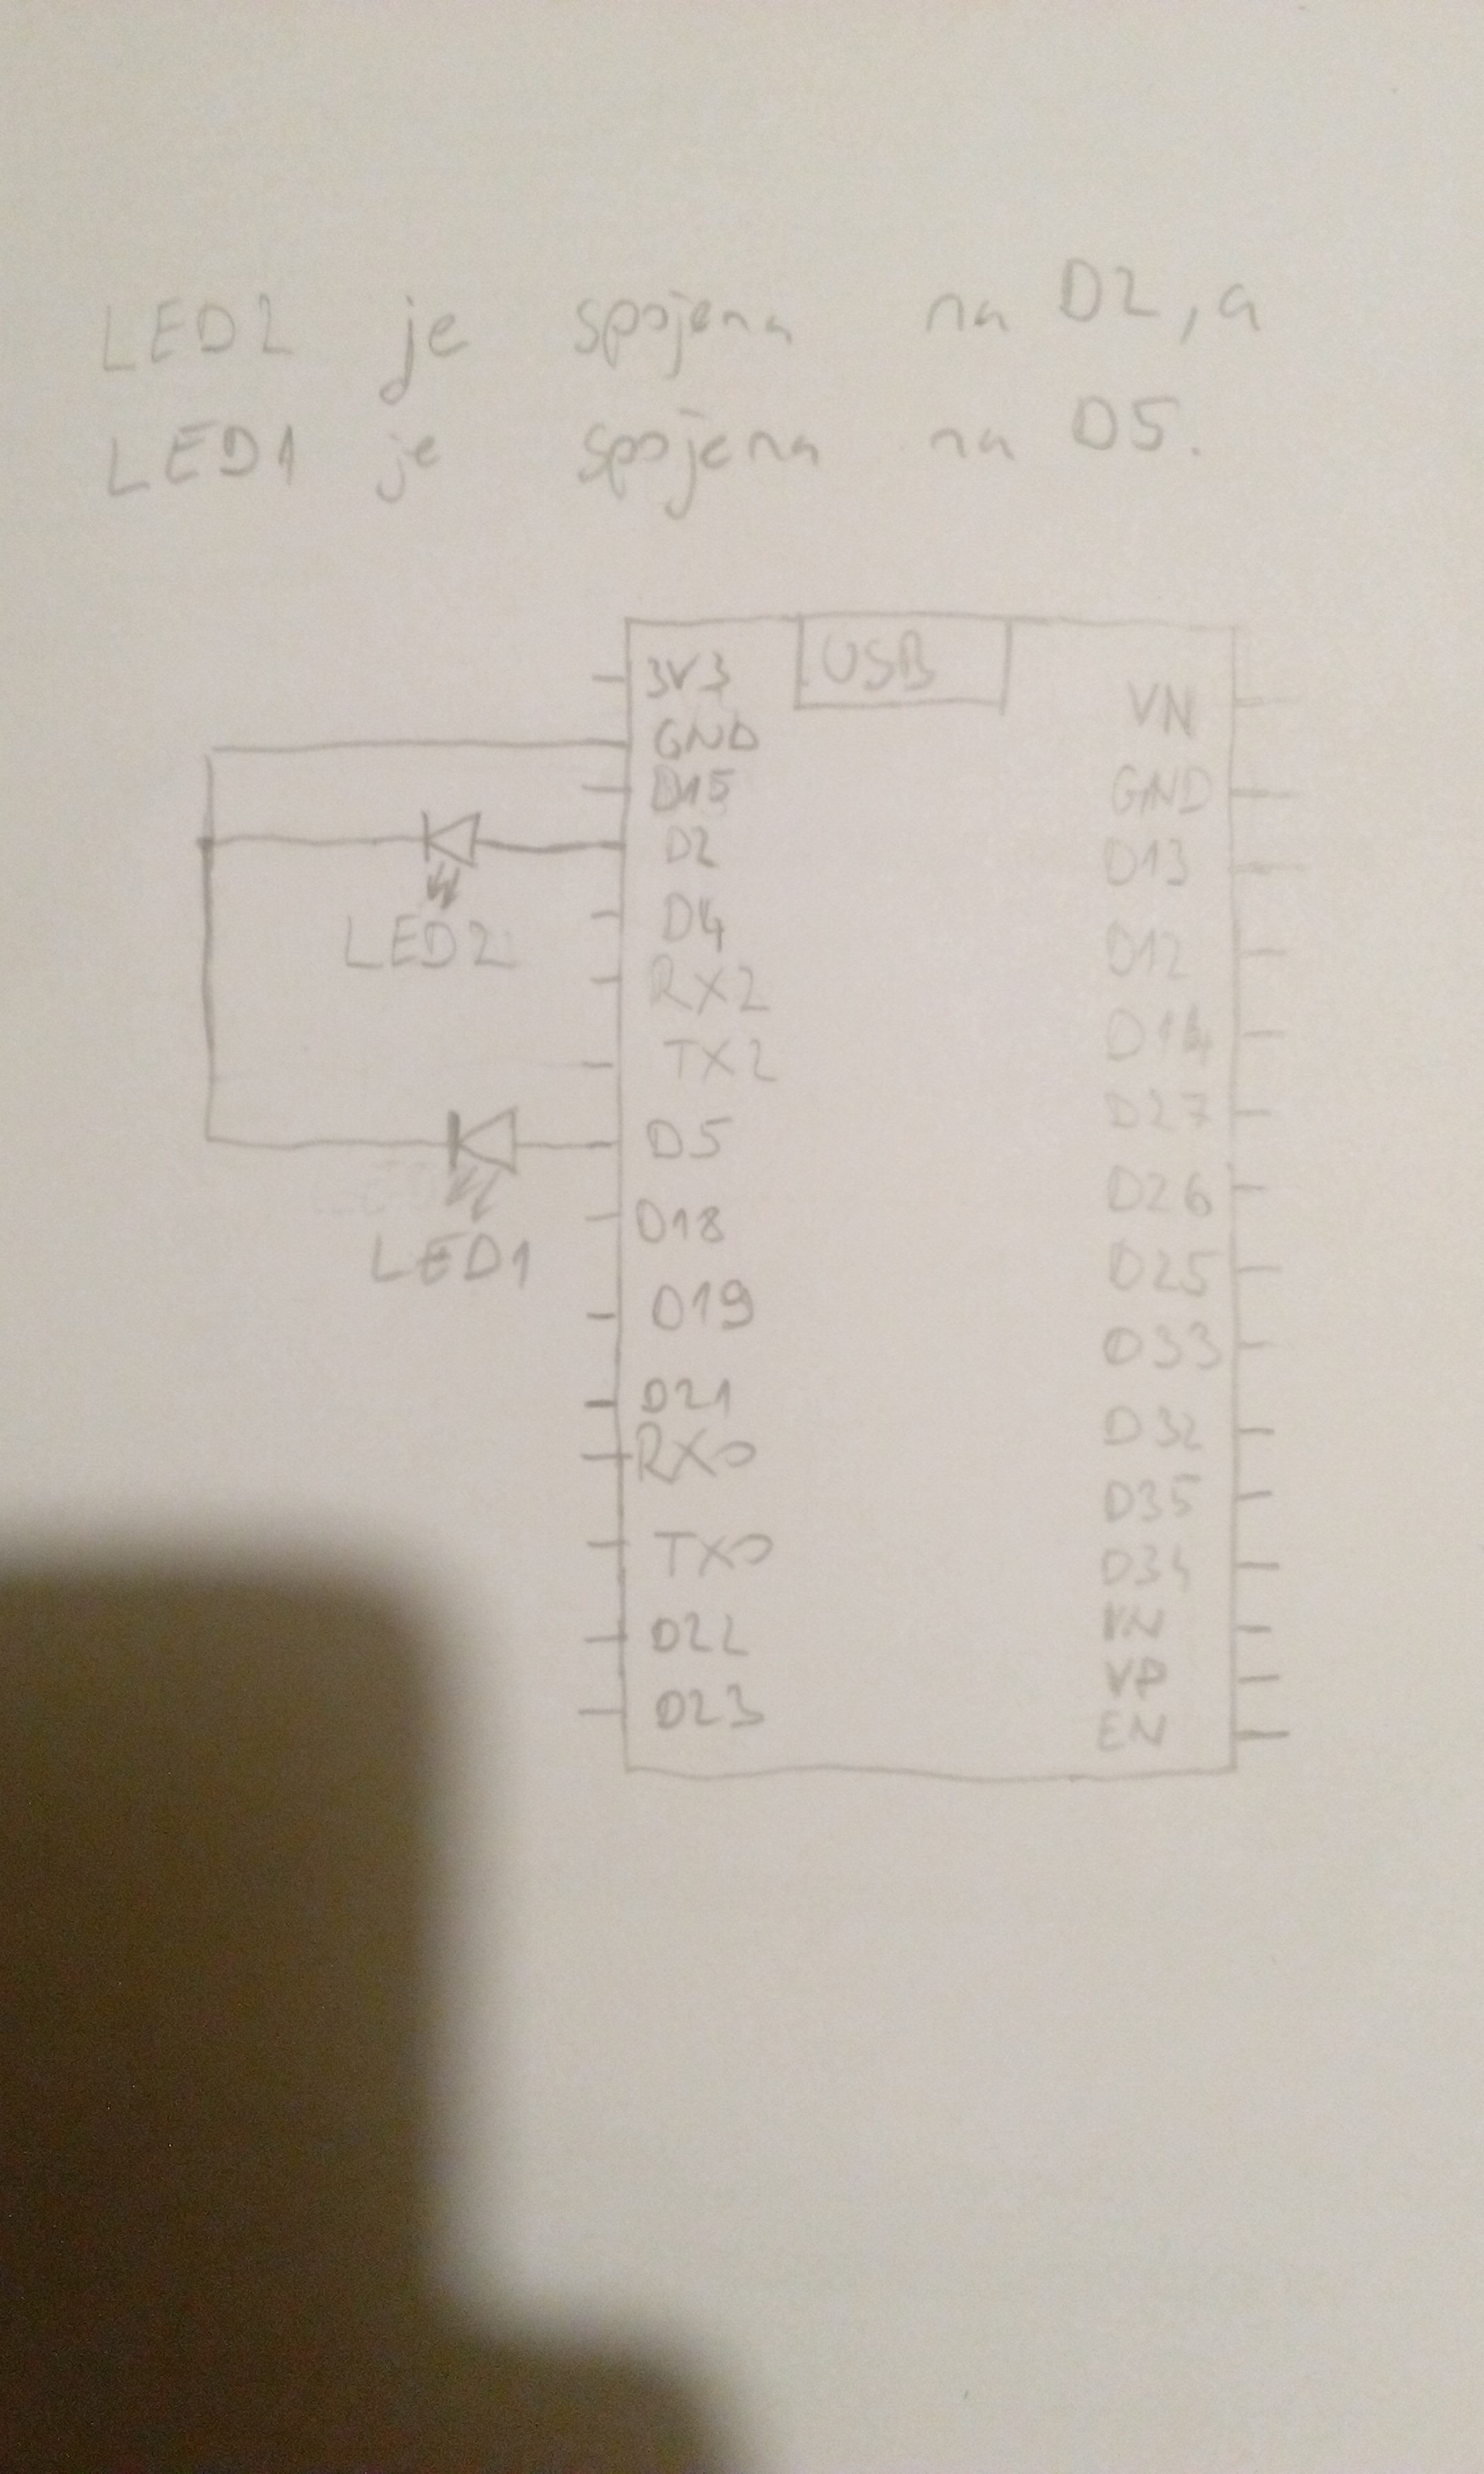 LED2 je spojena na D2, a
LED1 je spojena na D5.
USB
3V3
GND
D15
D2
LED2
D4
RX2
TX2
D5
D18
LED1
D19
D21
RX0
TX0
D22
D23
VN
GND
D13
D12
D14
D27
D26
D25
D33
D32
D35
D34
VN
VP
EN